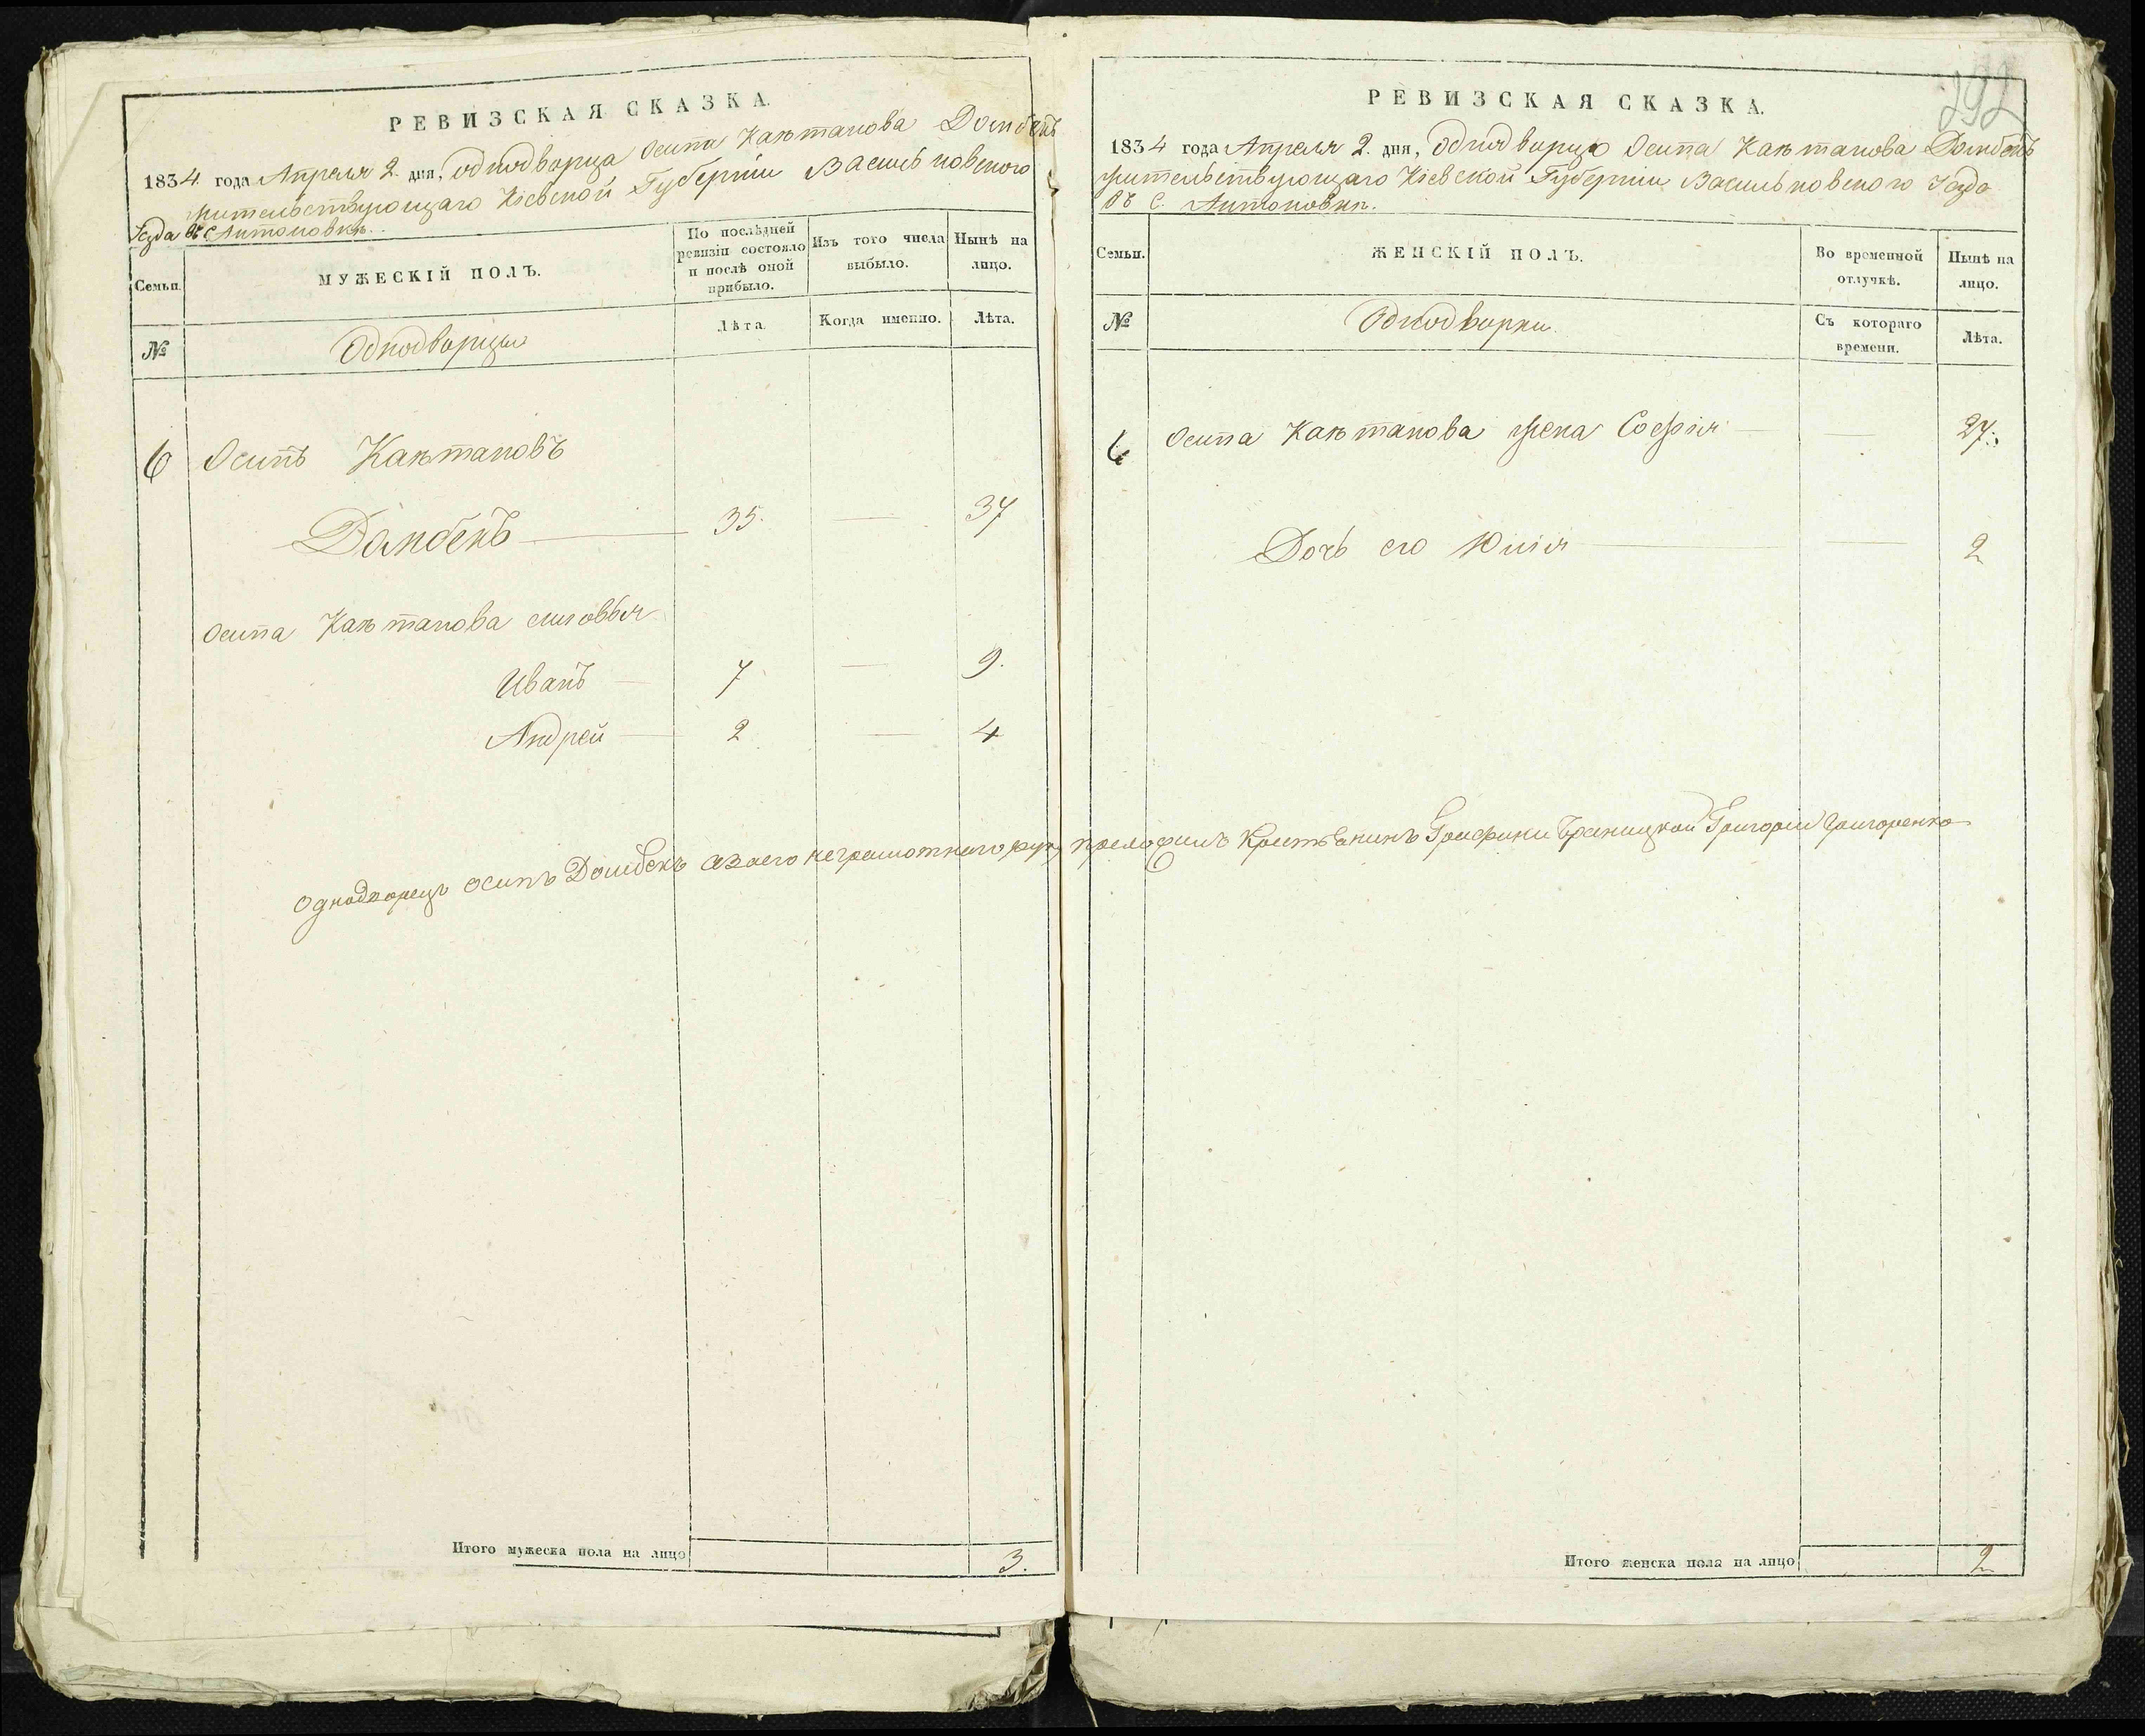 РЕВИЗСКАЯ СКАЗКА.
1834 года Апреля 2 дня, однодворца Осипа Каѣтанова Домбекъ
жительствующаго Кіевской Губерніи Васильковского
Уезда въ с Антоновкѣ.
Семьи.
МУЖЕСКІЙ ПОЛЪ.
По послѣдней ревизіи состояло и послѣ оной прибыло.
Изъ того числа выбыло.
Нынѣ на лицо.
№
Однодворцы
Лѣта.
Когда именно.
Лѣта.
6 Осипъ Каѣтановъ
Домбекъ 35. 37
Осипа Каѣтанова сыновья
Иванъ 7 9.
Андрей 2 4
Однодворецъ Осипъ Домбекъ а за его неграмотнаго руку приложилъ Крестьянинъ Графини Браницкой Григорий Григоренко
Итого мужеска пола на лицо 3.
292
РЕВИЗСКАЯ СКАЗКА.
1834 года Апреля 2. дня, Однодворца Осипа Каѣтанова Домбекъ
жительствующаго Кіевской Губерніи Васильковского Уезда
въ с. Антоновкѣ.
Семьи.
ЖЕНСКІЙ ПОЛЪ.
Во временной отлучкѣ.
Нынѣ на лицо.
№
Однодворки.
Съ котораго времени.
Лѣта.
6 Осипа Каѣтанова жена Софія 27.
Дочь его Юлія 2
Итого женска пола на лицо 2